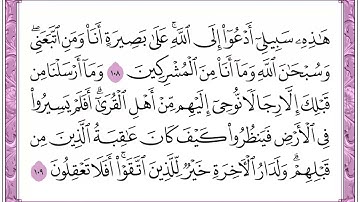 هَـٰذِهِۦ سَبِيلِىٓ أَدْعُوٓا۟ إِلَى ٱللَّهِ ۚ عَلَىٰ بَصِيرَةٍ أَنَا۠ وَمَنِ ٱتَّبَعَنِى ۖ
وَسُبْحَـٰنَ ٱللَّهِ وَمَآ أَنَا۠ مِنَ ٱلْمُشْرِكِينَ ١٠٨ وَمَآ أَرْسَلْنَا مِن
قَبْلِكَ إِلَّا رِجَالًا نُّوحِىٓ إِلَيْهِم مِّنْ أَهْلِ ٱلْقُرَىٰٓ ۗ أَفَلَمْ يَسِيرُوا۟
فِى ٱلْأَرْضِ فَيَنظُرُوا۟ كَيْفَ كَانَ عَـٰقِبَةُ ٱلَّذِينَ مِن
قَبْلِهِمْ ۗ وَلَدَارُ ٱلْـَٔاخِرَةِ خَيْرٌ لِّلَّذِينَ ٱتَّقَوْا۟ ۗ أَفَلَا تَعْقِلُونَ ١٠٩